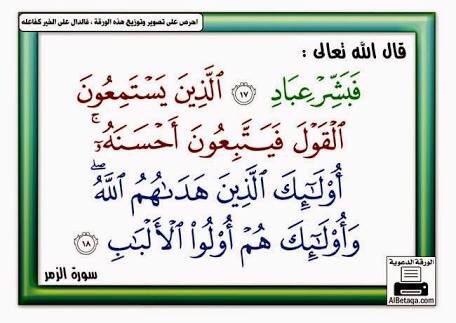 احرص على تصوير وتوزيع هذه الورقة ، فالدال على الخير كفاعله
قال الله تعالى :
فَبَشِّرۡ عِبَادِ ١٧ ٱلَّذِينَ يَسۡتَمِعُونَ
ٱلۡقَوۡلَ فَيَتَّبِعُونَ أَحۡسَنَهُۥٓۚ
أُوْلَٰٓئِكَ ٱلَّذِينَ هَدَىٰهُمُ ٱللَّهُۖ
وَأُوْلَٰٓئِكَ هُمۡ أُوْلُواْ ٱلۡأَلۡبَٰبِ ١٨
سورة الزمر
الورقة الدعوية
AlBetaqa.com